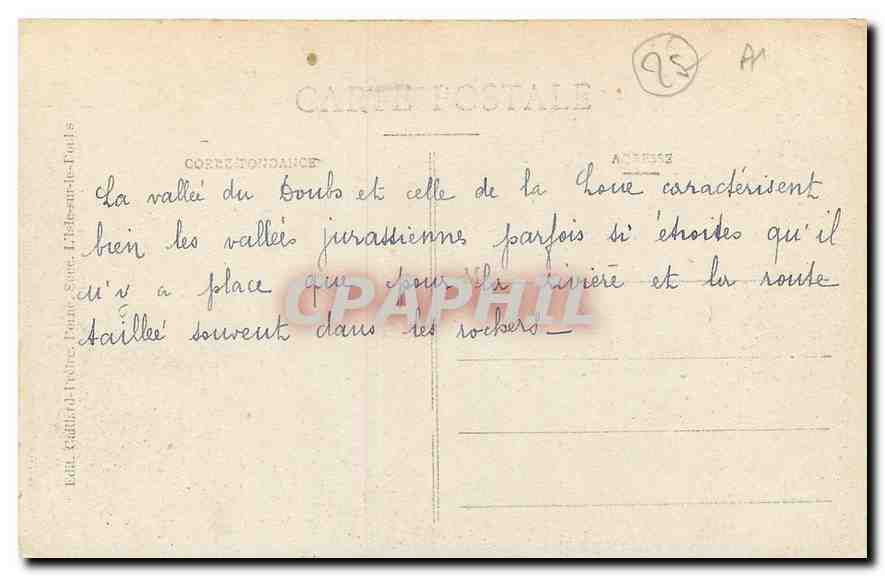 25 A1
CARTE POSTALE
CORRESPONDANCE
ADRESSE
La vallée du Doubs et celle de la Loue caractérisent
bien les vallées jurassiennes parfois si étroites qu'il
n'y a place que pour la rivière et la route
taillée souvent dans les rochers _
CPAPHIL
Edit. Gaillard-Prêtre, Succ. L'Isle-sur-le-Doubs